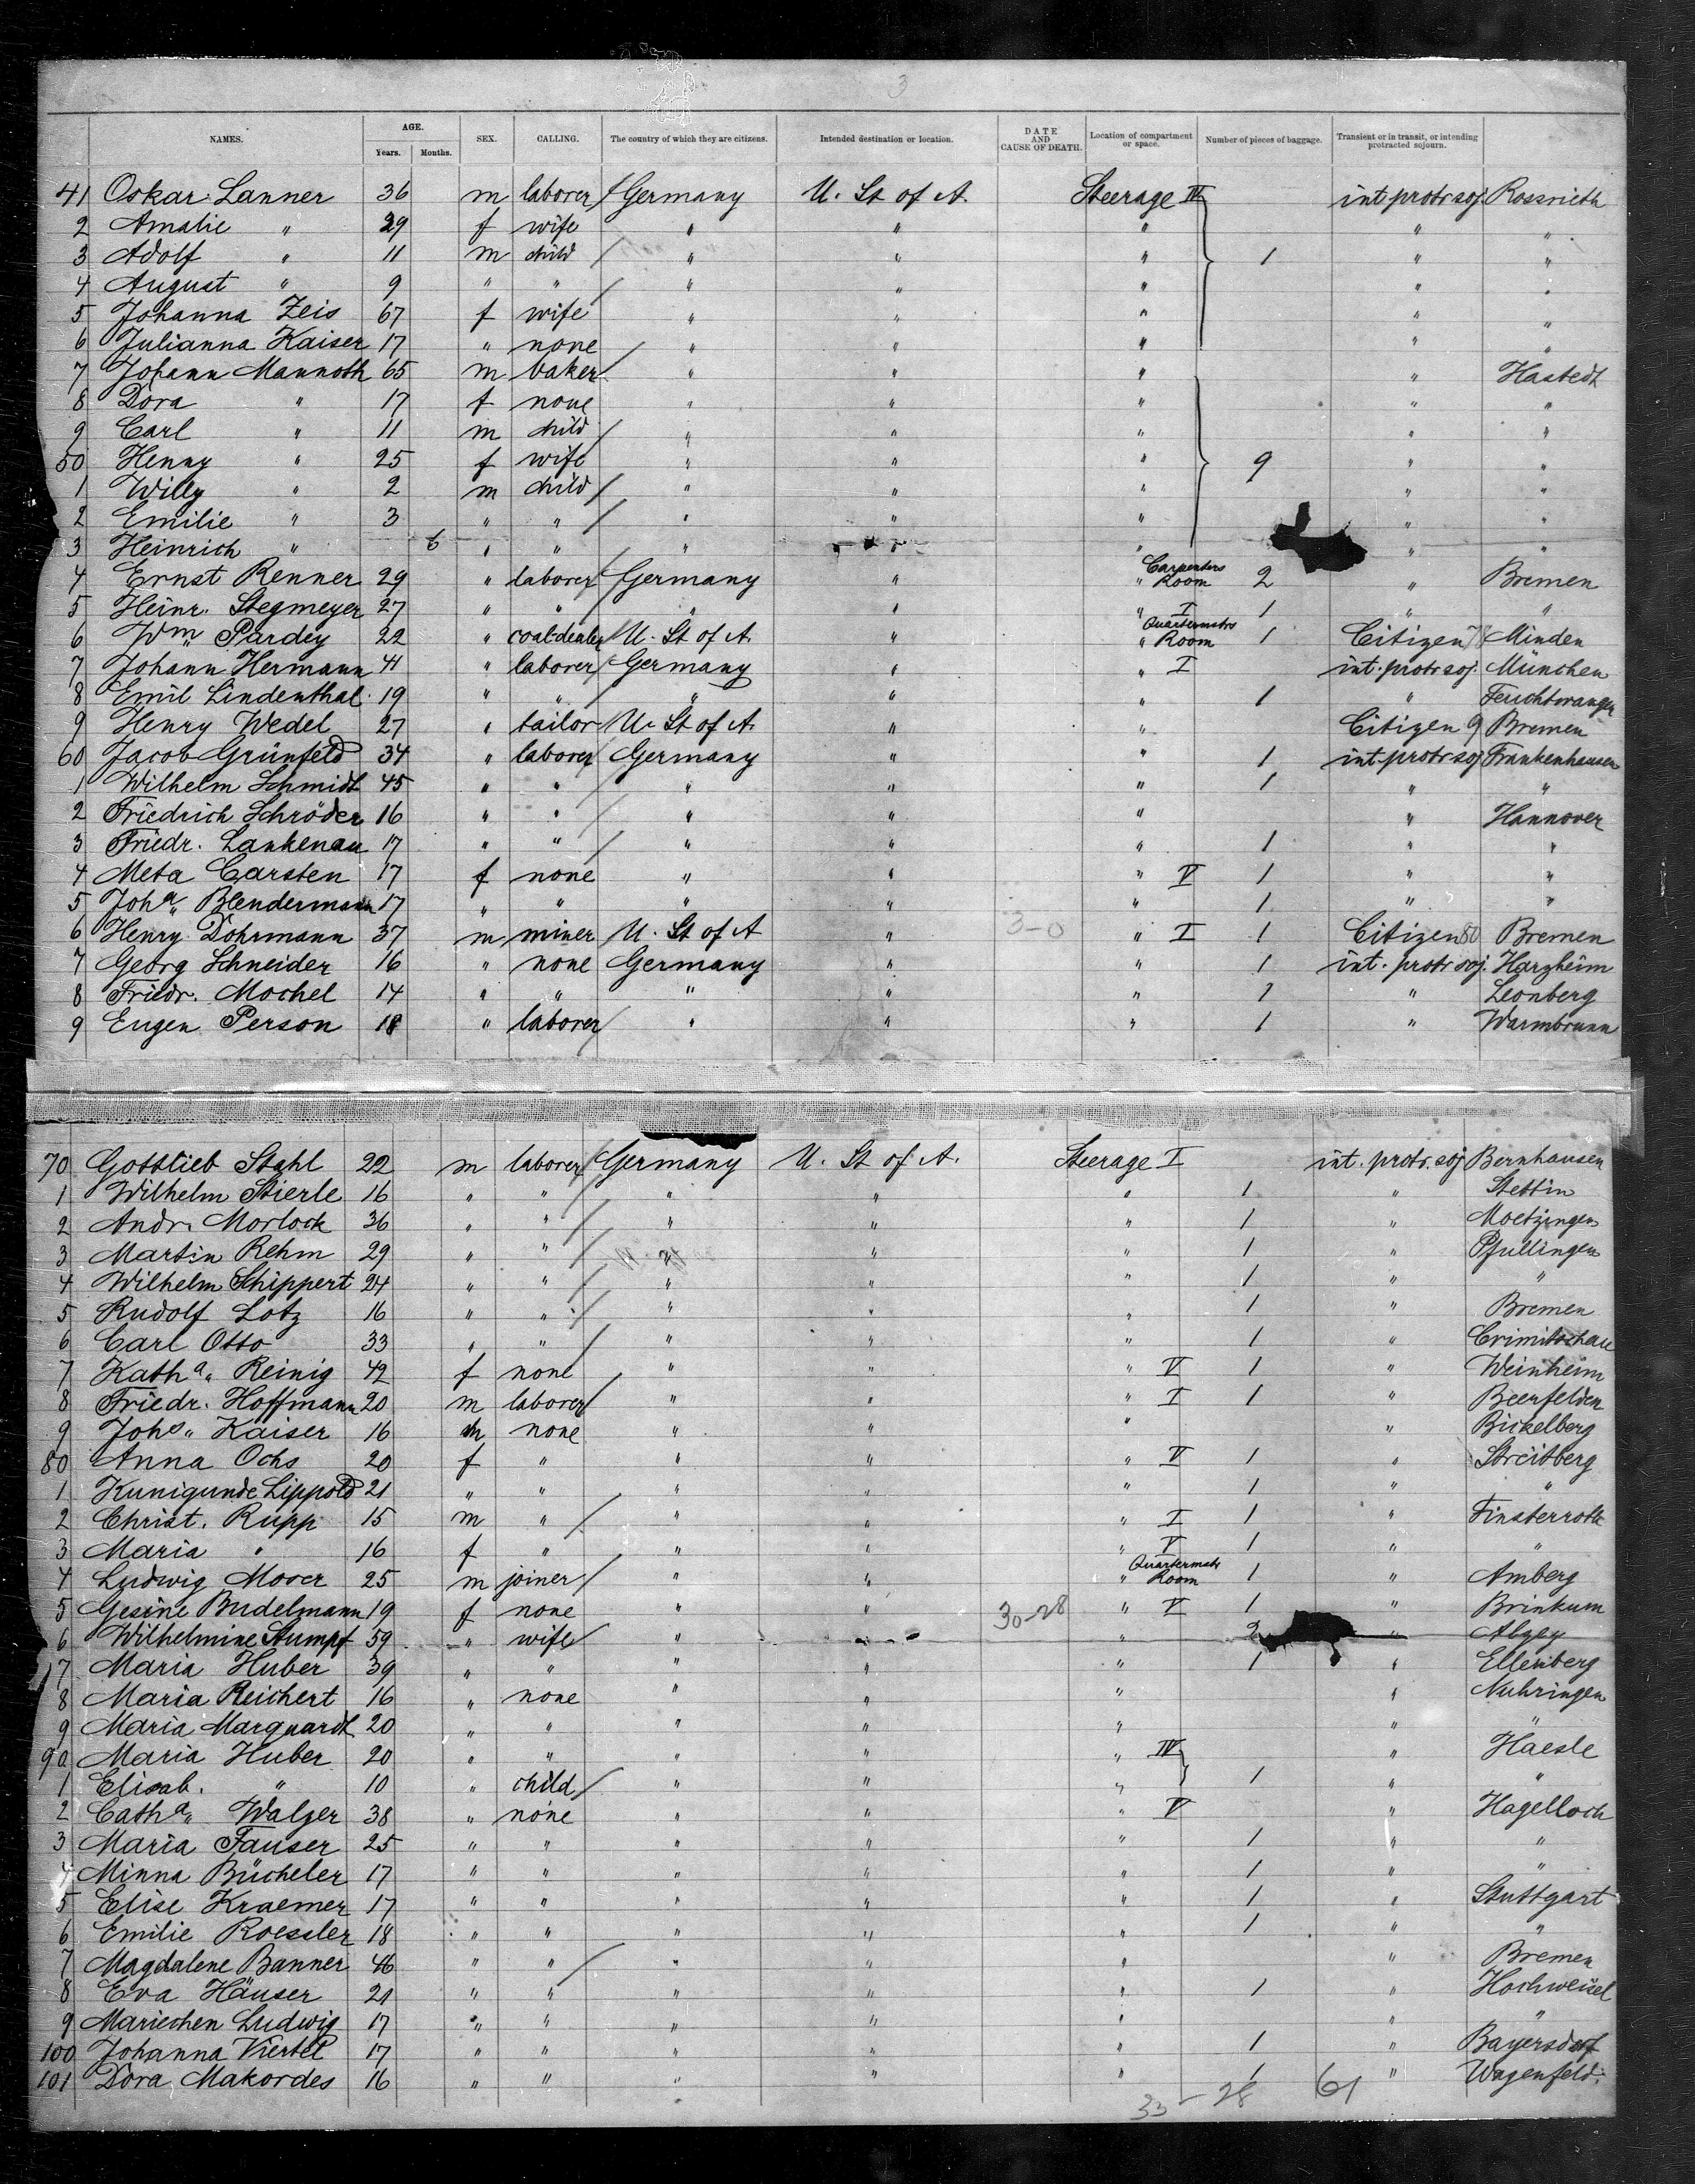 3
NAMES. AGE. Years. Months. SEX. CALLING. The country of which they are citizens. Intended destination or location. DATE AND CAUSE OF DEATH. Location of compartment or space. Number of pieces of baggage. Transient or in transit, or intending protracted sojourn.
41 Oskar Lanner 36 m laborer Germany U. St of A. Steerage IV int. protr soj. Rossrieth
2 Amalie " 29 f wife " " " " "
3 Adolf " 11 m child " " " 1 " "
4 August " 9 " " " " " " "
5 Johanna Zeis 67 f wife " " " " "
6 Julianna Kaiser 17 " none " " " " "
7 Johann Mannoth 65 m baker " " " " Hastedt
8 Dora " 17 f none " " " " "
9 Carl " 11 m child " " " " "
50 Henny " 25 f wife " " " 9 " "
1 Willy " 2 m child " " " " "
2 Emilie " 3 " " " " " " "
3 Heinrich " 6 " " " " " " "
4 Ernst Renner 29 " laborer Germany " " Carpenters Room 2 " Bremen
5 Heinr. Stegmeyer 27 " " " " " I 1 " "
6 Wm Pardey 22 " coal-dealer U. St of A. " " Quartermstrs Room 1 Citizen Minden
7 Johann Hermann 41 " laborer Germany " " I int. protr soj. München
8 Emil Lindenthal 19 " " " " " 1 " Feuchtwangen
9 Henry Wedel 27 " tailor U. St of A. " " Citizen 9 Bremen
60 Jacob Grünfeld 34 " laborer Germany " " 1 int. protr soj Frankenhausen
1 Wilhelm Schmidt 45 " " " " " 1 " "
2 Friedrich Schröder 16 " " " " " " Hannover
3 Friedr. Lankenau 17 " " " " " 1 " "
4 Meta Carsten 17 f none " " " V 1 " "
5 Joha. Blendermann 17 " " " " " 1 " "
6 Henry Dohrmann 37 m miner U. St of A " 3-0 " I 1 Citizen 80 Bremen
7 Georg Schneider 16 " none Germany " " 1 int. protr soj. Harzheim
8 Friedr. Mochel 14 " " " " " 1 " Leonberg
9 Eugen Person 18 " laborer " " " 1 " Warmbrunn
70 Gottlieb Stahl 22 m laborer Germany U. St of A. Steerage I int. protr. soj Bernhausen
1 Wilhelm Stierle 16 " " " " " 1 " Stettin
2 Andr. Morlock 36 " " " " " 1 " Moetzingen
3 Martin Rehm 29 " " " " " 1 " Pfullingen
4 Wilhelm Schippert 24 " " " " " 1 " "
5 Rudolf Lotz 16 " " " " " 1 " Bremen
6 Carl Otto 33 " " " " " 1 " Crimitschau
7 Katha. Reinig 42 f none " " " V 1 " Weinheim
8 Friedr. Hoffmann 20 m laborer " " " I 1 " Beerfelden
9 Johs. Kaiser 16 m none " " " " Bickelberg
80 Anna Ochs 20 f " " " " V 1 " Streitberg
1 Kunigunde Lippold 21 " " " " " 1 " "
2 Christ. Rupp 15 m " " " " I 1 " Finsterroth
3 Maria " 16 f " " " " V 1 " "
4 Ludwig Moser 25 m joiner " " " Quartermstr Room 1 " Amberg
5 Gesine Budelmann 19 f none " " 30-28 " V 1 " Brinkum
6 Wilhelmine Stumpf 59 " wife " " " 2 " Alzey
7 Maria Huber 39 " " " " " 1 " Ellenberg
8 Maria Reichert 16 " none " " " " Nuhringen
9 Maria Marquardt 20 " " " " " " "
90 Maria Huber 20 " " " " " IV " Haesle
1 Elisab. " 10 " child " " " 1 " "
2 Catha. Walzer 38 " none " " " V " Hagelloch
3 Maria Fauser 25 " " " " " 1 " "
4 Minna Bücheler 17 " " " " " 1 " "
5 Elise Kraemer 17 " " " " " 1 " Stuttgart
6 Emilie Roessler 18 " " " " " 1 " "
7 Magdalene Banner 46 " " " " " " Bremen
8 Eva Häuser 21 " " " " " 1 " Hochweisel
9 Mariechen Ludwig 17 " " " " " " "
100 Johanna Viertel 17 " " " " " 1 " Bayersdorf
101 Dora Makordes 16 " " " " " 1 " Wagenfeld.
33-28 61